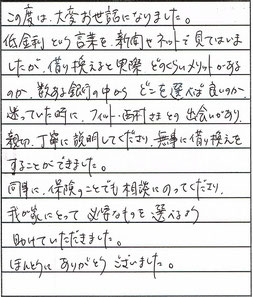 この度は、大変お世話になりました。
低金利という言葉を、新聞やネットで見てはいま
したが、借り換えると実際どのくらいメリットがある
のか、数ある銀行の中から どこを選べば良いのか
迷っていた時に、フィット・西村さまとの出会いがあり、
親切、丁寧に説明してくださり、無事に借り換えを
することができました。
同時に、保険のことでも相談にのってくださり、
我が家にとって必要なものを選べるよう
助けていただきました。
ほんとうに ありがとう ございました。